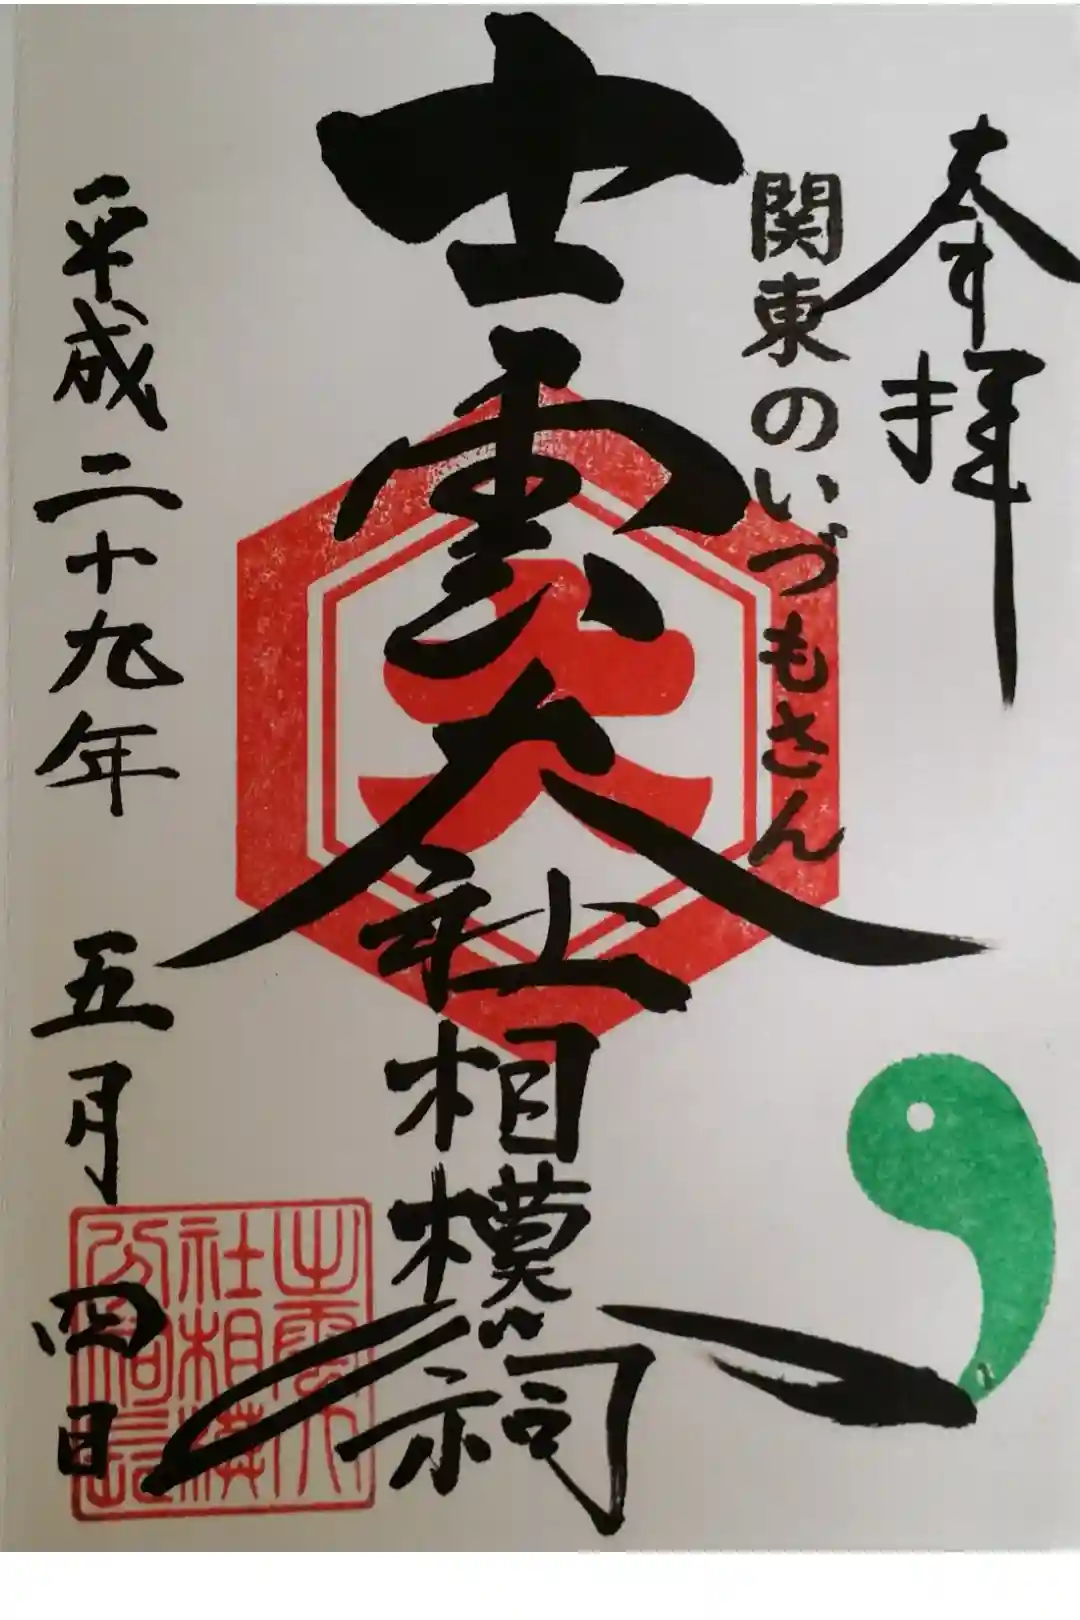 奉拝
関東のいづもさん
出雲大社相模分祠
平成二十九年 五月 四日
出雲大
社相模
分祠印